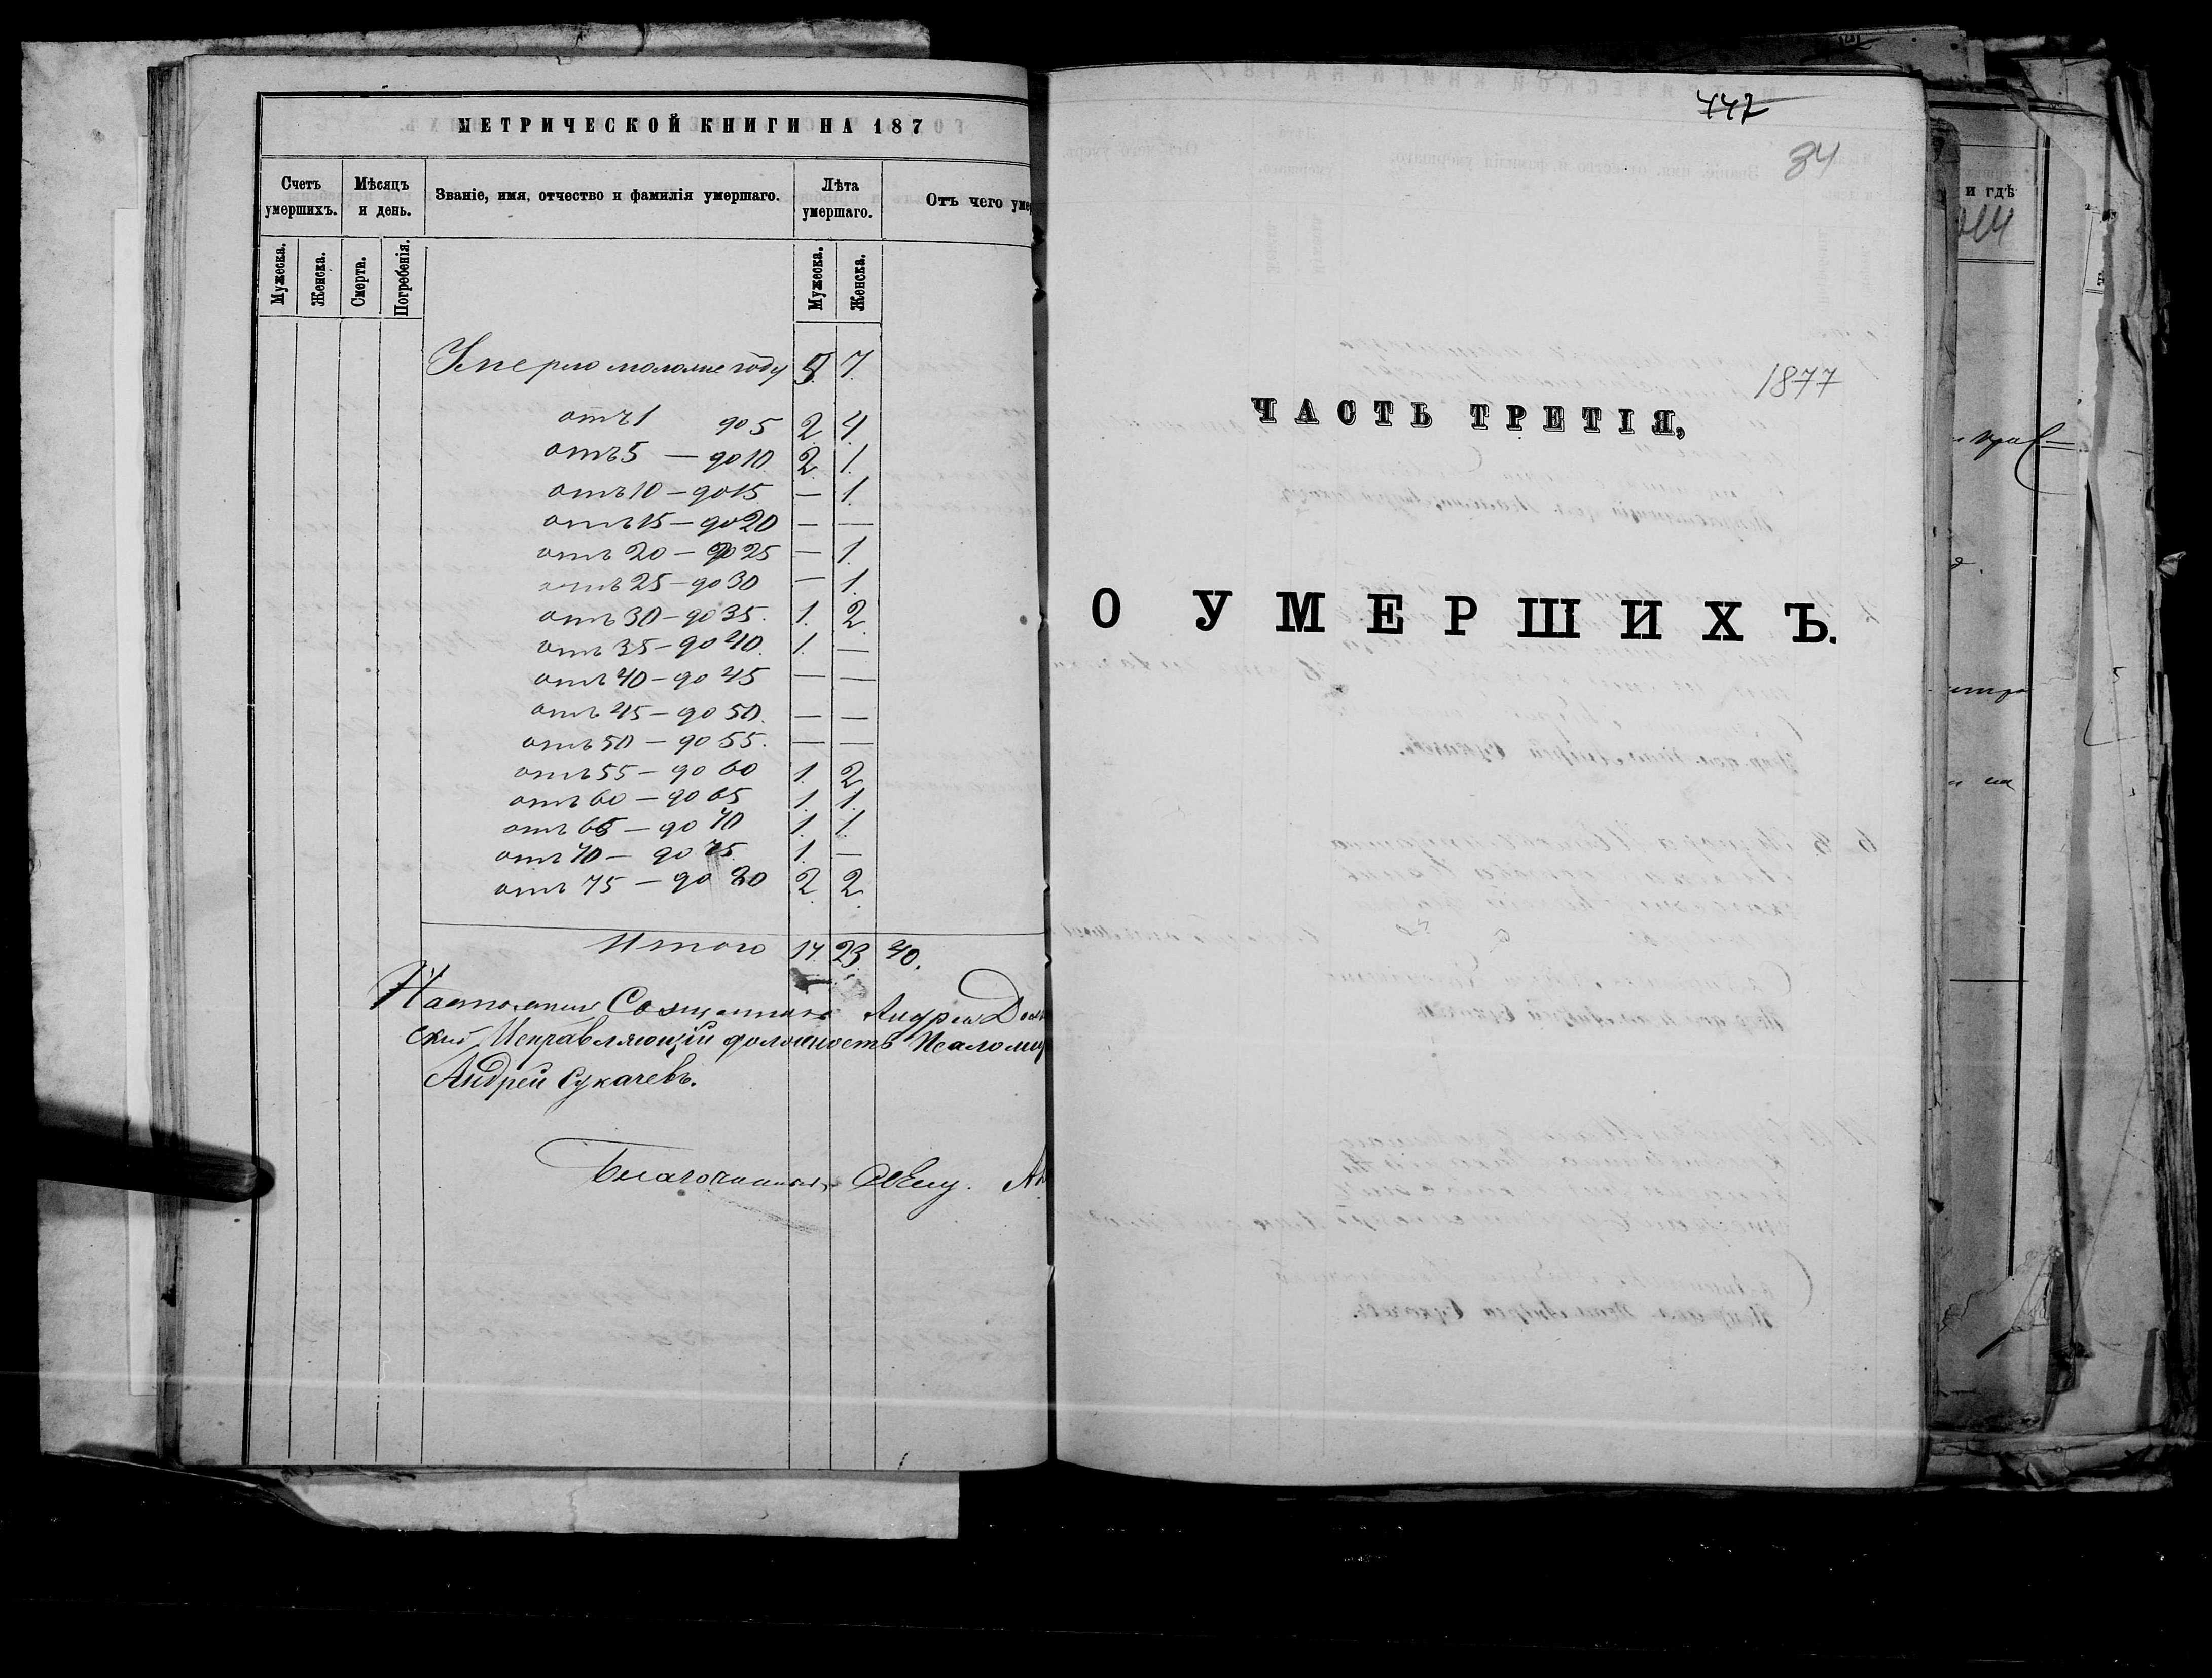 МЕТРИЧЕСКОЙ КНИГИ НА 187
Счетъ умершихъ.
Мѣсяцъ и день.
Званіе, имя, отчество и фамилія умершаго.
Лѣта умершаго.
Отъ чего умер
Мужеска.
Женска.
Смерти.
Погребенія.
Мужеска.
Женска.
Умерло моложе году 5. 7.
отъ 1 до 5 2. 4
отъ 5 — до 10 2. 1.
отъ 10 — до 15 — 1.
отъ 15 — до 20 — —
отъ 20 — до 25 — 1.
отъ 25 — до 30 — 1.
отъ 30 — до 35. 1. 2.
отъ 35 — до 40. 1. —
отъ 40 — до 45 — —
отъ 45 — до 50. — —
отъ 50 — до 55. — —
отъ 55 — до 60 1. 2
отъ 60 — до 65 1. 1.
отъ 65 — до 70 1. 1.
отъ 70 — до 75. 1. —
отъ 75 — до 80 2. 2.
Итого 17. 23. 40.
Священникъ Андрей
скій, Исправляющій должность Псаломщ
Андрей Сукачевъ.
Благочинный, Свящ.
447
34
1877
ЧАСТЬ ТРЕТІЯ,
О УМЕРШИХЪ.
и гдѣ